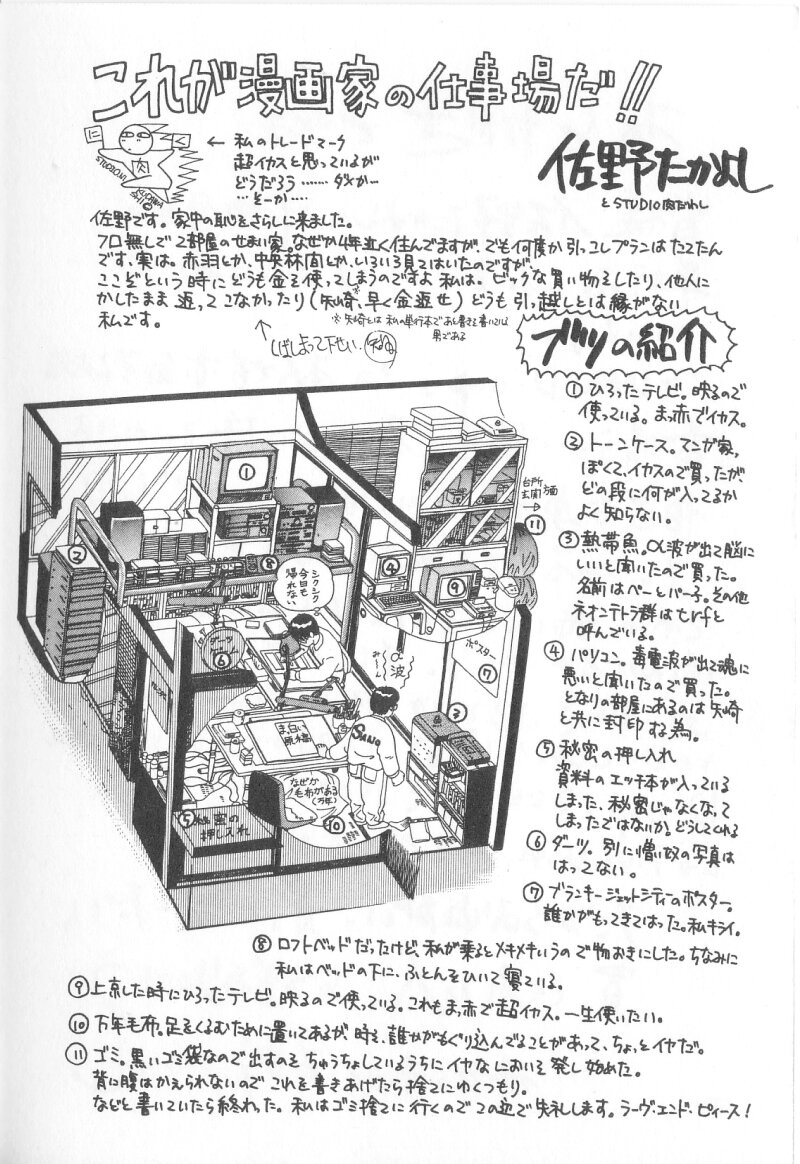 これが漫画家の仕事場だ!!
佐野たかよし
とSTUDIO肉たわし
に
く
肉
← 私のトレードマーク
超イカスと思っているが
どうだろう……ダメかー
…そーか……
佐野です。家中の恥をさらしに来ました。
フロ無しで2部屋のせまい家。なぜか4年近く住んでますが、でも何度か引っこしプランはたてたん
です、実は。赤羽とか、中央林間とか、いろいろ見てはいたのですが、
ここぞという時にどうも金を使ってしまうのですよ私は。ビックな買い物をしたり、他人に
かしたまま返ってこなかったり(矢崎※、早く金返せ)どうも引っ越しとは縁がない
私です。
※矢崎とは私の単行本であと書きを書いている
男である
ブツの紹介
① ひろったテレビ。映るので
使っている。まっ赤でイカス。
② トーンケース。マンガ家っ
ぽくて、イカスので買ったが、
どの段に何が入ってるか
よく知らない。
③ 熱帯魚。α波が出て脳に
いいと聞いたので買った。
名前はペーとパー子。その他
ネオンテトラ群はtrfと
呼んでいる。
④ パソコン。毒電波が出て魂に
悪いと聞いたので買った。
となりの部屋にあるのは矢崎
と共に封印する為。
⑤ 秘密の押し入れ
資料のエッチ本が入っている
しまった、秘密じゃなくなって
しまったではないか。どうしてくれる
⑥ ダーツ。別に憎い奴の写真は
はってない。
⑦ ブランキージェットシティーのポスター。
誰かがもってきてはった。私キライ。
⑧ ロフトベッドだったけど、私が乗るとメキメキいうので物おきにした。ちなみに
私はベッドの下に、ふとんをひいて寝ている。
⑨ 上京した時にひろったテレビ。映るので使っている。これもまっ赤で超イカス。一生使いたい。
⑩ 万年毛布。足をくるむために置いてあるが、時々、誰かがもぐり込んでることがあって、ちょっとイヤだ。
⑪ ゴミ。黒いゴミ袋なので出すのをちゅうちょしているうちにイヤなにおいを発し始めた。
背に腹はかえられないのでこれを書きあげたら捨てにゆくつもり。
などと書いていたら終わった。私はゴミ捨てに行くのでこの辺で失礼します。ラーヴ・エンド・ピィース!
①
②
⑧
シクシク
今日も
帰れない
④
⑨
台所
玄関方面
→
⑪
⑥
α波
み〜ん
ポスター
⑦
③
まっ白い
原稿
SANO
なぜか
毛布がある
(万年)
⑩
⑤ 秘密の
押し入れ